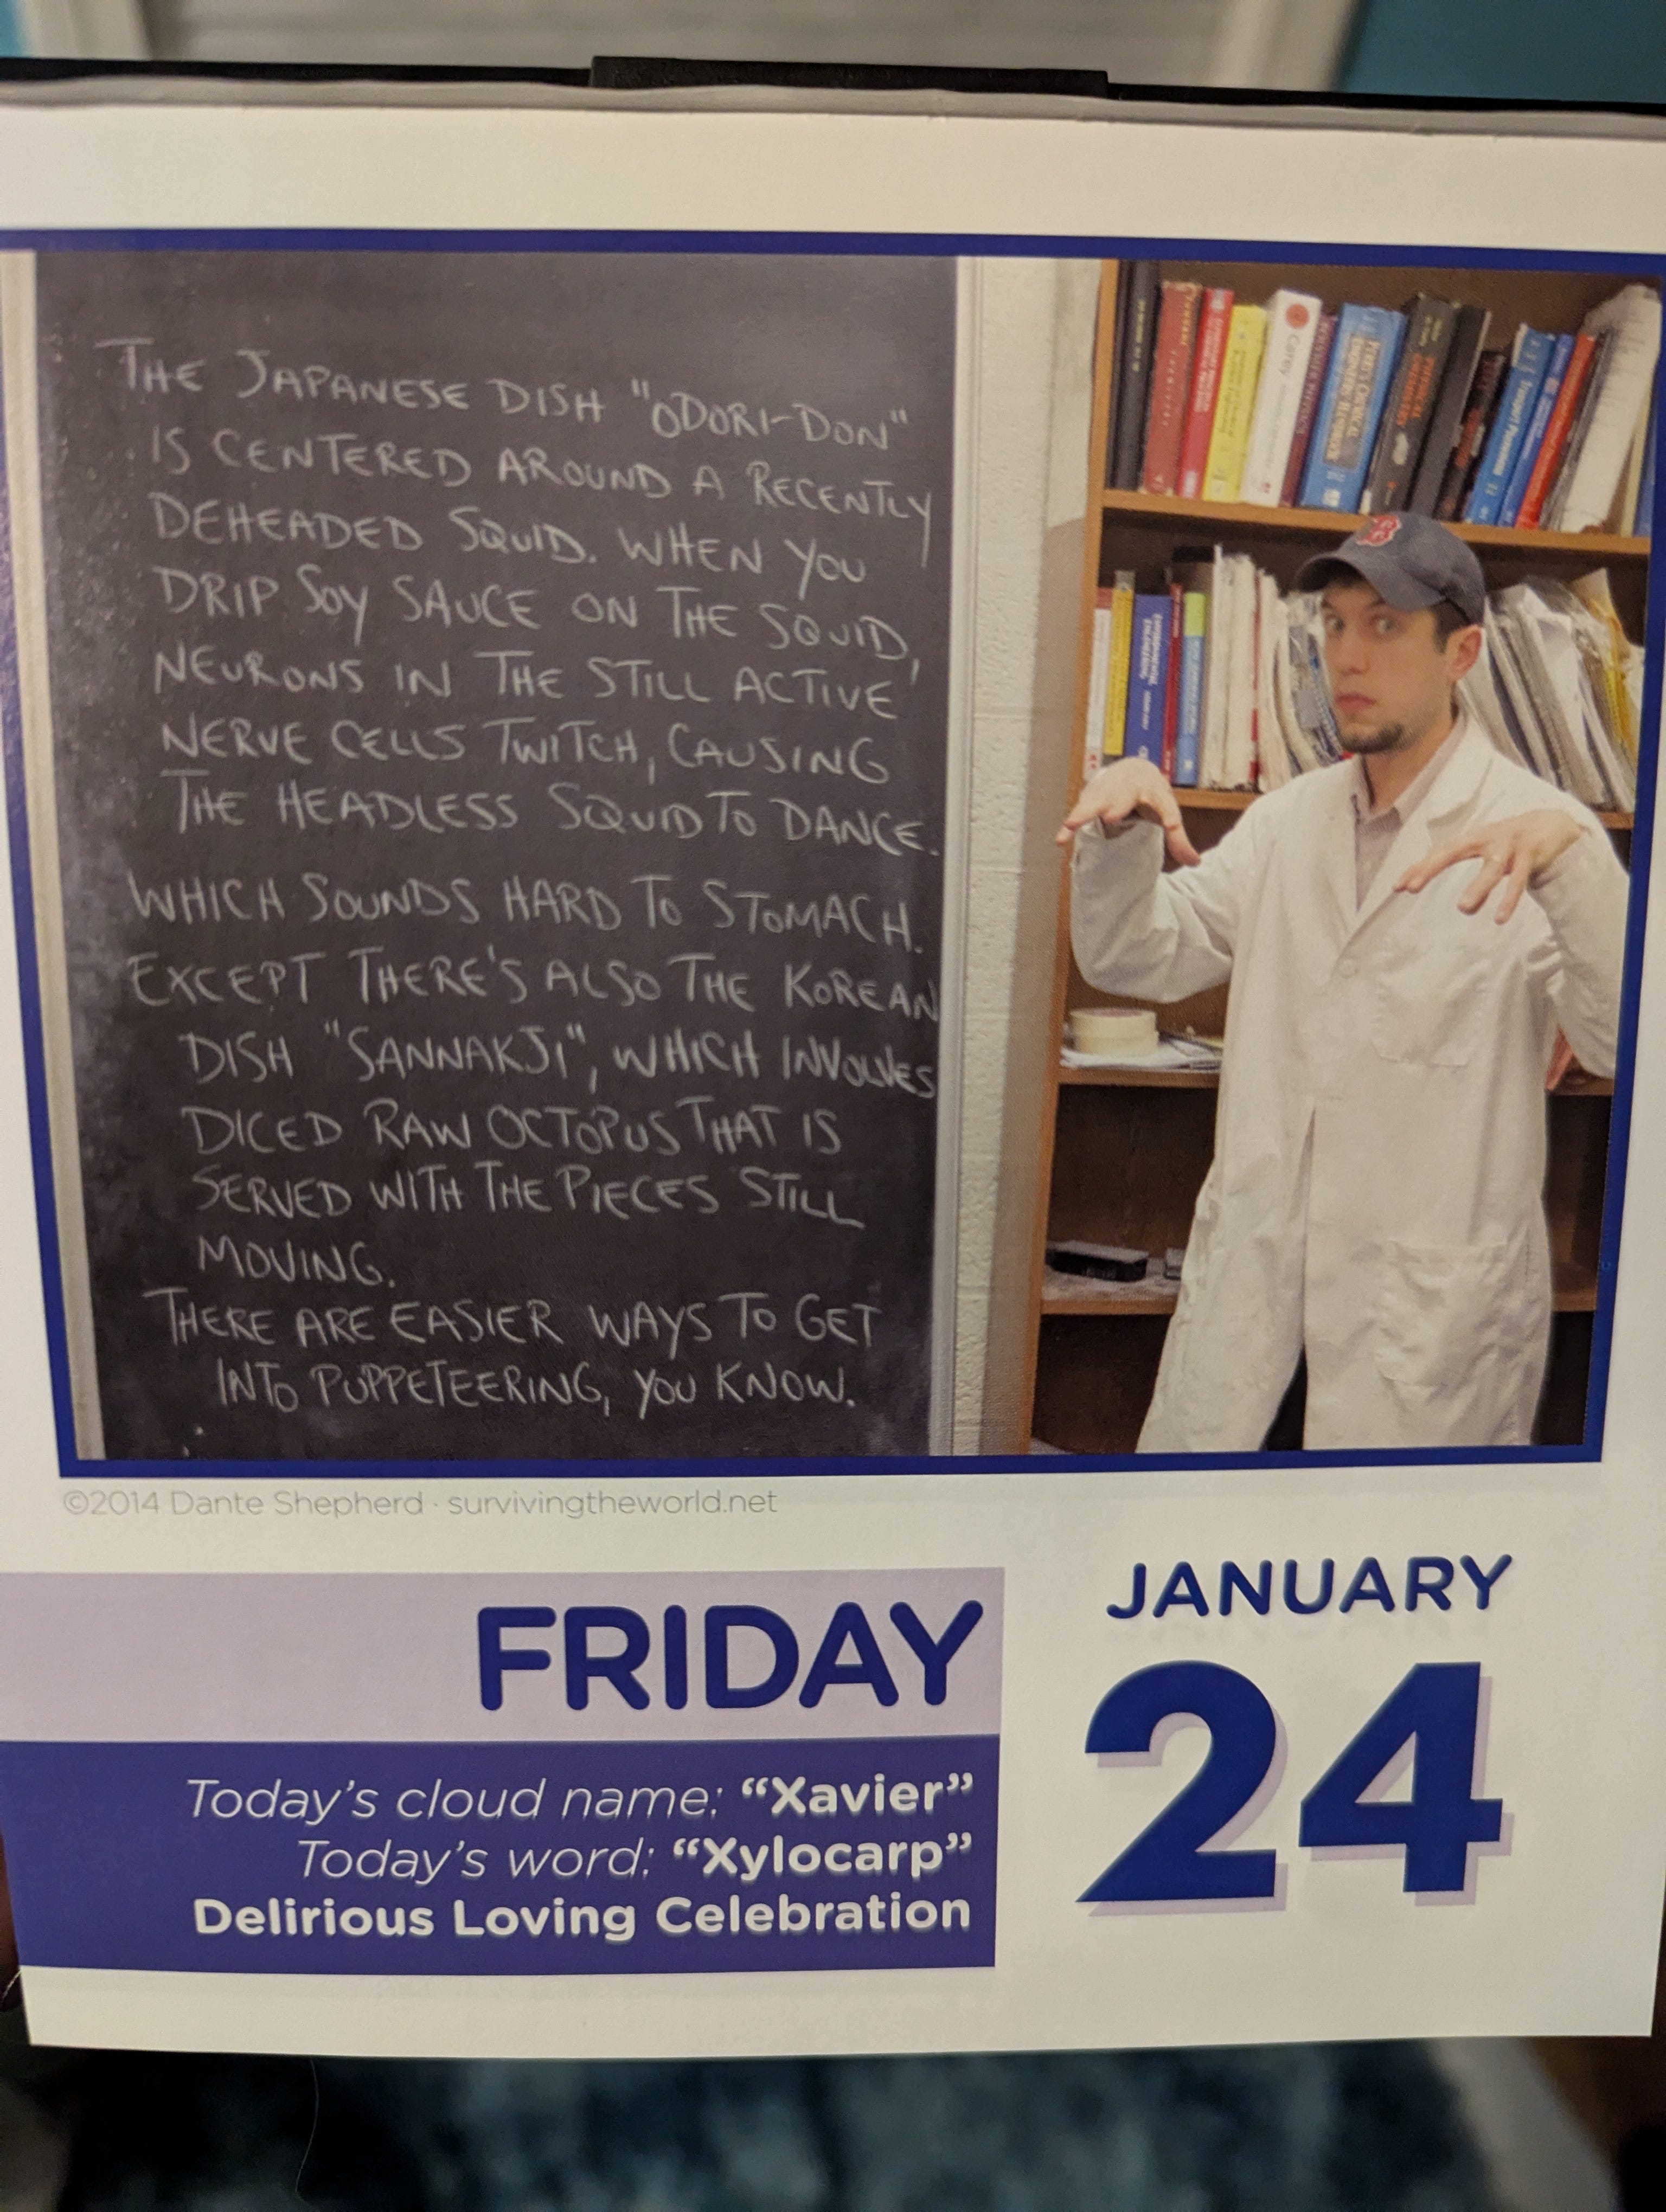 THE JAPANESE DISH "ODORI-DON"
IS CENTERED AROUND A RECENTLY
DEHEADED SQUID. WHEN YOU
DRIP SOY SAUCE ON THE SQUID,
NEURONS IN THE STILL ACTIVE
NERVE CELLS TWITCH, CAUSING
THE HEADLESS SQUID TO DANCE.
WHICH SOUNDS HARD TO STOMACH.
EXCEPT THERE'S ALSO THE KOREAN
DISH "SANNAKJI", WHICH INVOLVES
DICED RAW OCTOPUS THAT IS
SERVED WITH THE PIECES STILL
MOVING.
THERE ARE EASIER WAYS TO GET
INTO PUPPETEERING, YOU KNOW.
Carey
B
©2014 Dante Shepherd · survivingtheworld.net
FRIDAY
JANUARY
24
Today's cloud name: “Xavier”
Today's word: “Xylocarp”
Delirious Loving Celebration